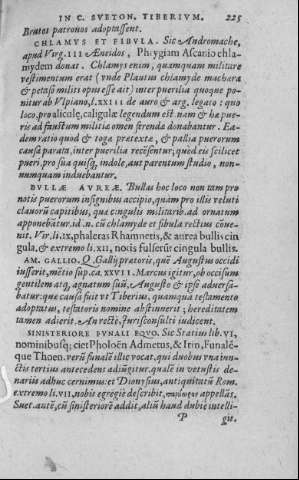 IN C. SVETON. TIBERIVM. 225
Brutos patronos adoptassent.
CHLAMYS ET FIBVLA. Sic Andromache,
apud Virg. III Æneidos, Phrygiam Ascanio chla-
mydem donat. Chlamys enim, quamquam militare
vestimentum erat (vnde Plautus chlamyde machæra
& petaso militi opus esse ait) inter puerilia quoque po-
nitur ab Vlpiano, l. XXIII de auro & arg. legato: quo
loco, pro aliculæ, caligulæ legendum est nam & hæ pue-
ris ad faustum militiæ omen strenda donabantur. Ea-
dem ratio quod & toga prætexta, & pallia puerorum
causa parata, inter puerilia recēsentur; quòd eis scilicet
pueri, pro sua quisq; indole, aut parentum studio, non-
numquam induebantur.
BVLLÆ AVREÆ. Bullas hoc loco non tam pro
notis puerorum insignibus accipio, quàm pro illis veluti
clauorū capitibus, quæ cingulis militarib. ad ornatum
apponebātur. id. n. cū chlamyde et fibula rectius conue-
nit. Vir. li. IX, phaleras Rhamnetis, & aurea bullis cin
gula, & extremo li. XII, notis fulserūt cingula bullis.
AM. GALLIO. Q. Gallij prætoris, quē Augustus occidi
iusserit, mētio sup. ca. XXVII. Marcus igitur, ob occisum
gentilem atq; agnatum suū, Augusto & ipse aduersa-
batur: quæ causa fuit vt Tiberius, quamquā testamento
adoptatus, testatoris nomine abstinuerit; hereditatem
tamen adierit. An rectè, Iurisconsulti iudicent.
SINISTERIORE FVNALI EQVO. Sic Statius lib. VI,
nominibusq; ciet Pholoēn Admetus, & Irin, Funalē-
que Thoen. verū funalē illic vocat, qui duobus vna iun-
ctis tertius antecedens adiūgitur. qualē in vetustis de-
nariis adhuc cernimus: et Dionysius, antiquitatū Rom.
extremo li. VII, nobis egregiè describit, appellās.
Suet. autē, cū sinisteriorē addit, aliū haud dubiè intelli-
P git.